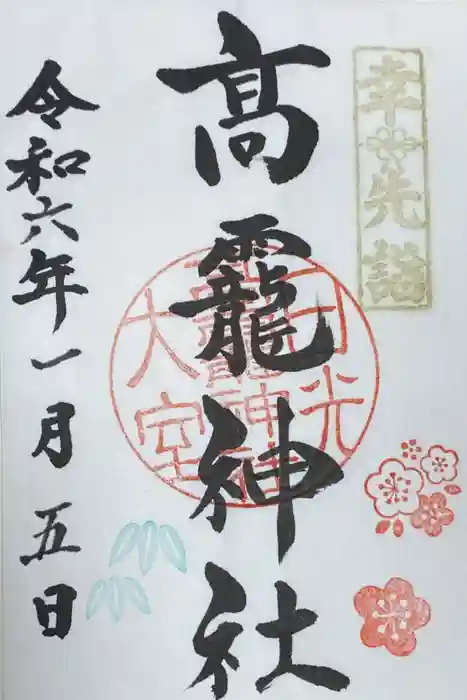 幸先詣
高龗神社
日光
大室
高龗神社
令和六年一月五日